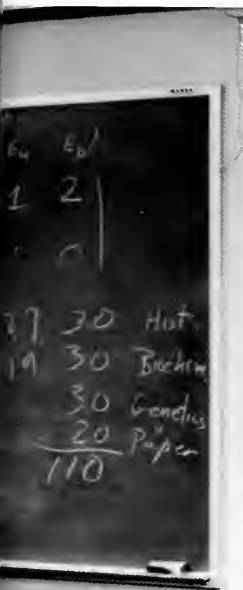 E4 Eb
1 2
37 30 Hist.
19 30 Biochem
30 Genetics
20 Paper
110